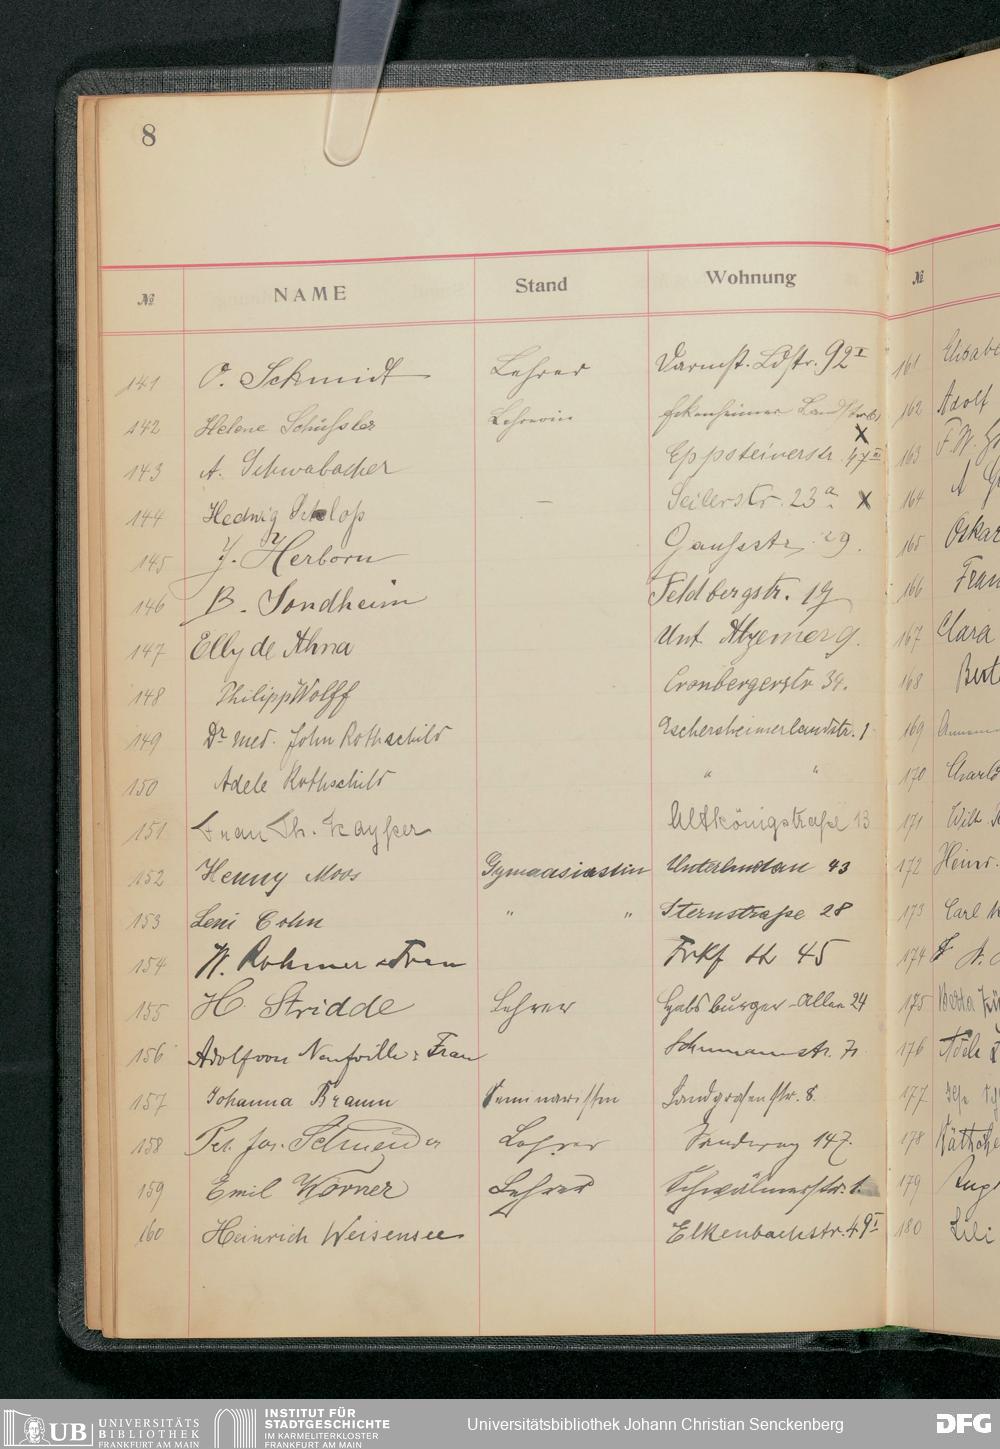 8
№ NAME Stand Wohnung №
141 O. Schmidt Lehrer Darmst. Ldstr. 92 I 161
142 Helene Schüssler Lehrerin Eckenheimer Landstr. 162 Adolf
143 A. Schwabacher Eppsteinerstr. 47 III X 163 F. W.
144 Hedwig Schloß — Seilerstr. 23a X 164 A
145 J. Herborn Gaussstr. 29. 165 Oskar
146 B. Sondheim Feldbergstr. 19 166 Fran
147 Elly de Ahna Unt. Atzemer 9. 167 Clara
148 Philipp Wolff Cronbergerstr 34. 168 Bert
149 Dr med. John Rothschild Eschersheimerlandstr. 1 169
150 Adele Rothschild " " 170 Charlo
151 Frau Th. Kaysser Altkönigstraße 13 171 Wilh
152 Henny Moos Gymnasiastin Unterlindau 43 172 Heinr.
153 Leni Cohn " " Sternstraße 28 173 Carl
154 W. Rohmer u Frau Frkf 45 174
155 H. Stridde Lehrer Habsburger-Allee 24 175
156 Adolf von Neufville u. Frau Schumannstr. 7 176 Adele
157 Johanna Braun Seminaristin Landgrafenstr. 8. 177
158 Pet. Jos. Schneider Lehrer Sandweg 147. 178
159 Emil Körner Lehrer Schwälmerstr. 1. 179
160 Heinrich Weisensee Elkenbachstr. 49 I 180 Lili
UB UNIVERSITÄTS
BIBLIOTHEK
FRANKFURT AM MAIN
INSTITUT FÜR
STADTGESCHICHTE
IM KARMELITERKLOSTER
FRANKFURT AM MAIN
Universitätsbibliothek Johann Christian Senckenberg
DFG